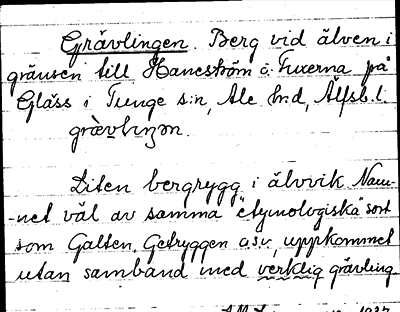 Grävlingen. Berg vid älven i
gränsen till Haneström o. Fuxerna på
Gläss i Tunge s:n, Ale h:d, Älfsb. l.
grävlıŋən.
Liten bergrygg i älvvik Nam-
-net väl av samma "etymologiska" sort
som Galten Getryggen o.s.v., uppkommet
utan samband med verklig grävling.
1937